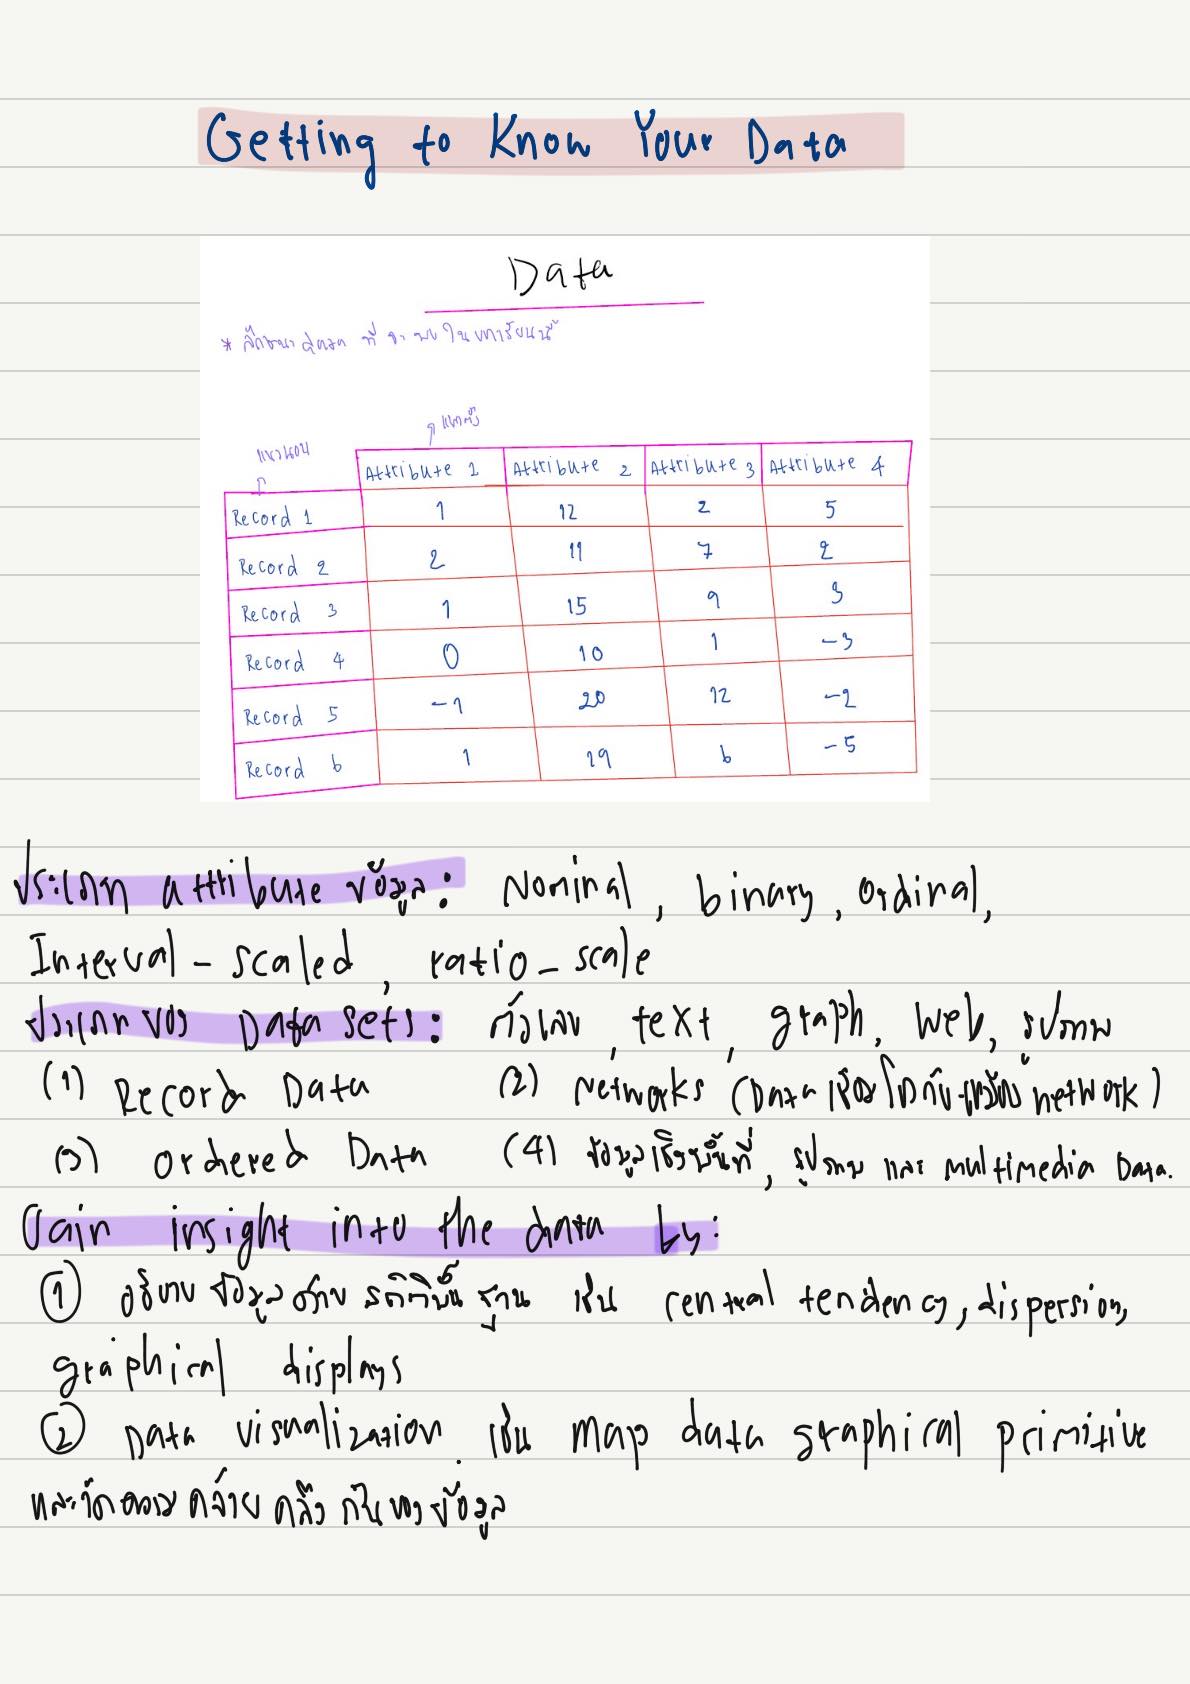 Getting to Know Your Data
Data
* ลักษณะข้อมูล ที่ จะ พบ ใน บทเรียนนี้
แนวตั้ง
แนวนอน
Attribute 1 Attribute 2 Attribute 3 Attribute 4
Record 1 1 12 2 5
Record 2 2 11 7 2
Record 3 1 15 9 3
Record 4 0 10 1 -3
Record 5 -1 20 12 -2
Record 6 1 19 6 -5
ประเภท attribute ข้อมูล: Nominal, binary, ordinal,
Interval-scaled, ratio-scale
ประเภทของ Data sets: ตัวเลข, text, graph, Web, รูปภาพ
(1) Record Data (2) Networks (Data เชื่อมโยงกันเหมือน network)
(3) Ordered Data (4) ข้อมูลเชิงพื้นที่, รูปภาพ และ multimedia Data.
Gain insight into the data by:
① อธิบายข้อมูลด้วยสถิติพื้นฐาน เช่น central tendency, dispersion,
graphical displays
② Data visualization เช่น map data graphical primitive
และวัดความคล้ายคลึงกันของข้อมูล